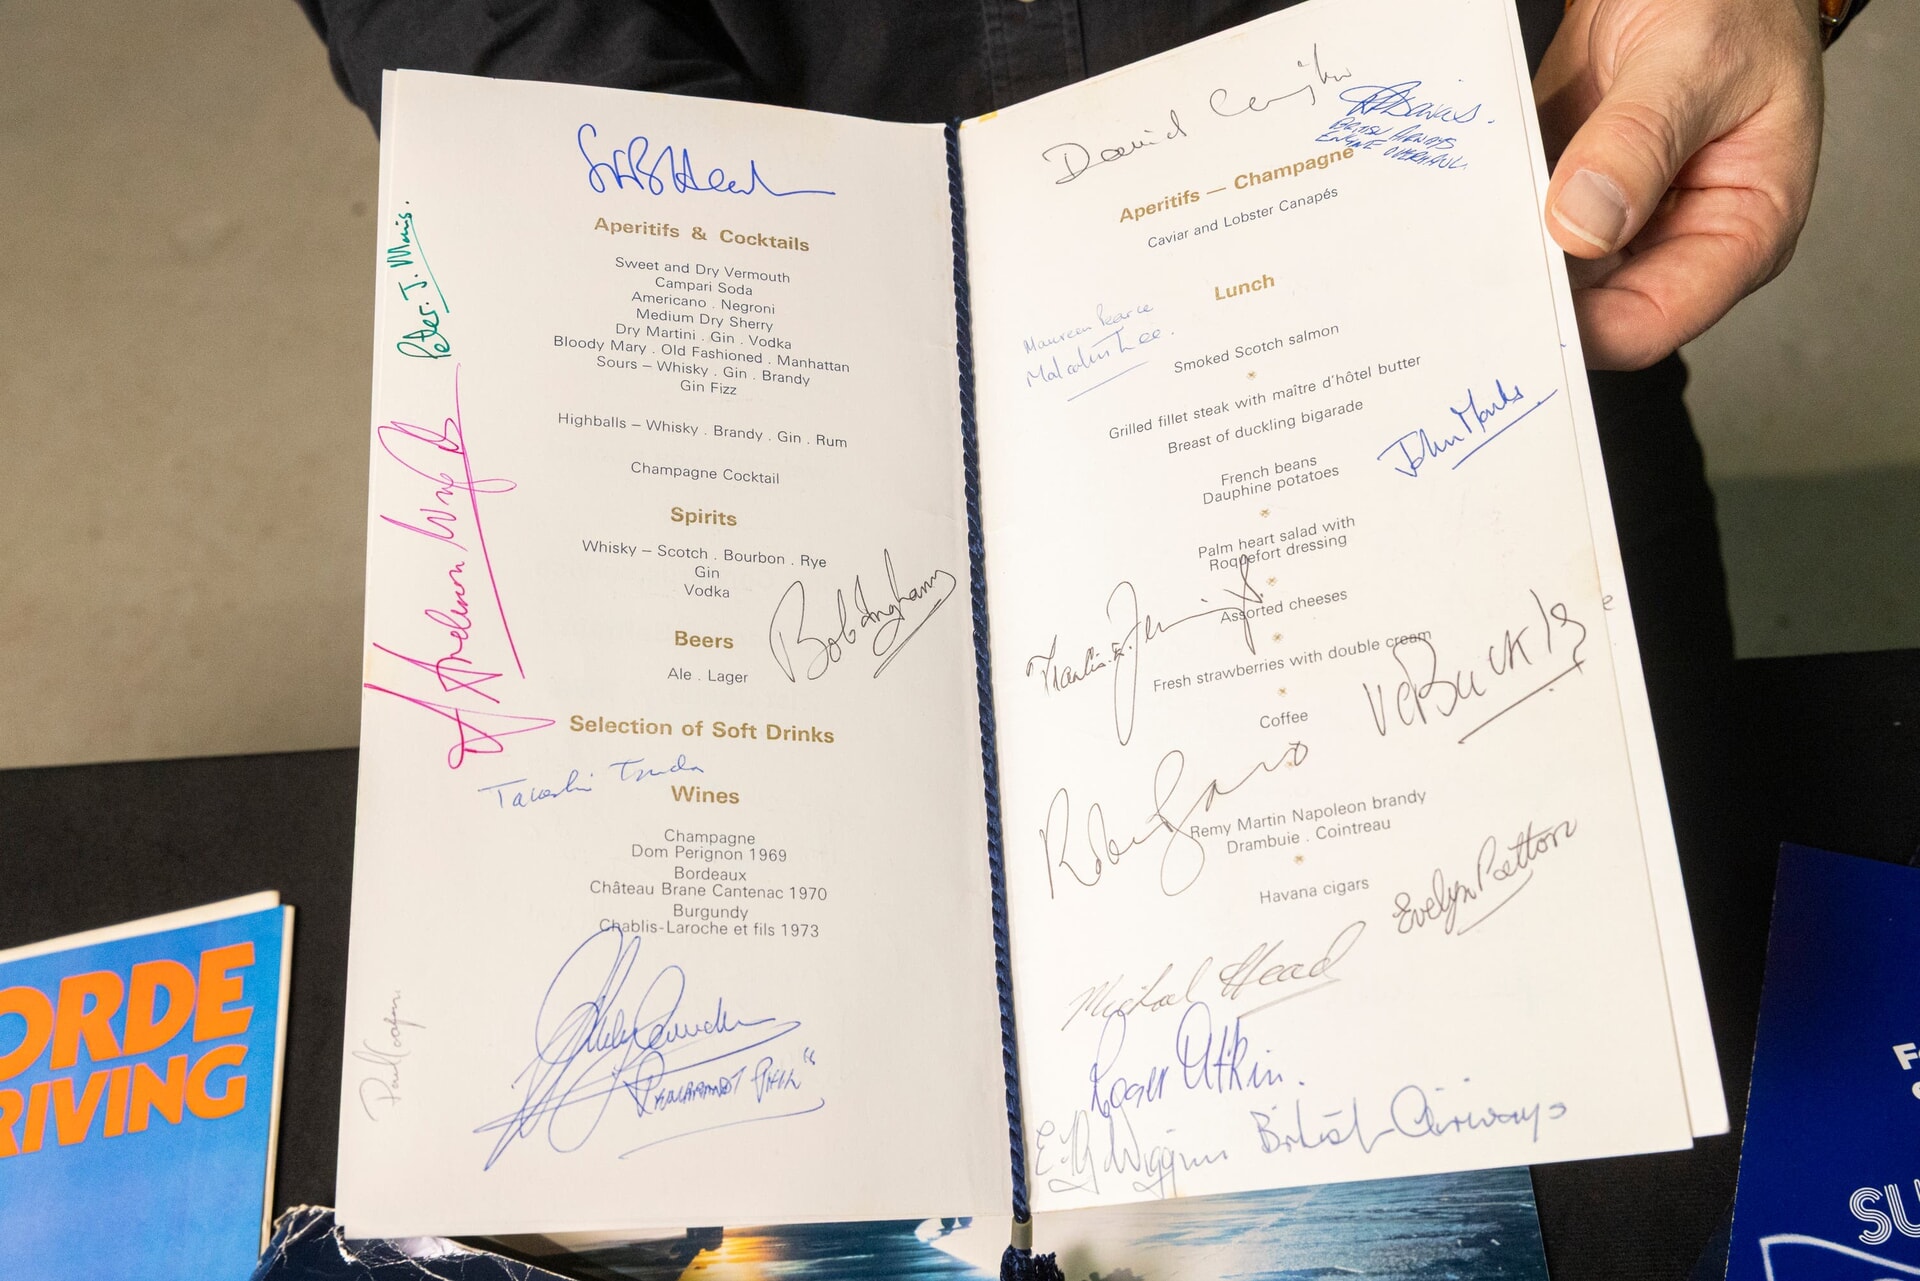 Aperitifs & Cocktails
Sweet and Dry Vermouth
Campari Soda
Americano . Negroni
Medium Dry Sherry
Dry Martini . Gin . Vodka
Bloody Mary . Old Fashioned . Manhattan
Sours – Whisky . Gin . Brandy
Gin Fizz
Highballs – Whisky . Brandy . Gin . Rum
Champagne Cocktail
Spirits
Whisky – Scotch . Bourbon . Rye
Gin
Vodka
Bob Ingham
Beers
Ale . Lager
Selection of Soft Drinks
Wines
Champagne
Dom Perignon 1969
Bordeaux
Château Brane Cantenac 1970
Burgundy
Chablis-Laroche et fils 1973
Peter J.
David
BRITISH AIRWAYS
ENGINE OVERHAUL
Aperitifs — Champagne
Caviar and Lobster Canapés
Lunch
Maureen Pearce
Malcolm Lee
Smoked Scotch salmon
Grilled fillet steak with maître d'hôtel butter
Breast of duckling bigarade
John Marks
French beans
Dauphine potatoes
Palm heart salad with
Roquefort dressing
Assorted cheeses
Fresh strawberries with double cream
Coffee
Remy Martin Napoleon brandy
Drambuie . Cointreau
Havana cigars
Evelyn Patton
Michael Head
Roger Atkin.
Wiggins British Airways
ORDE
RIVING
SU